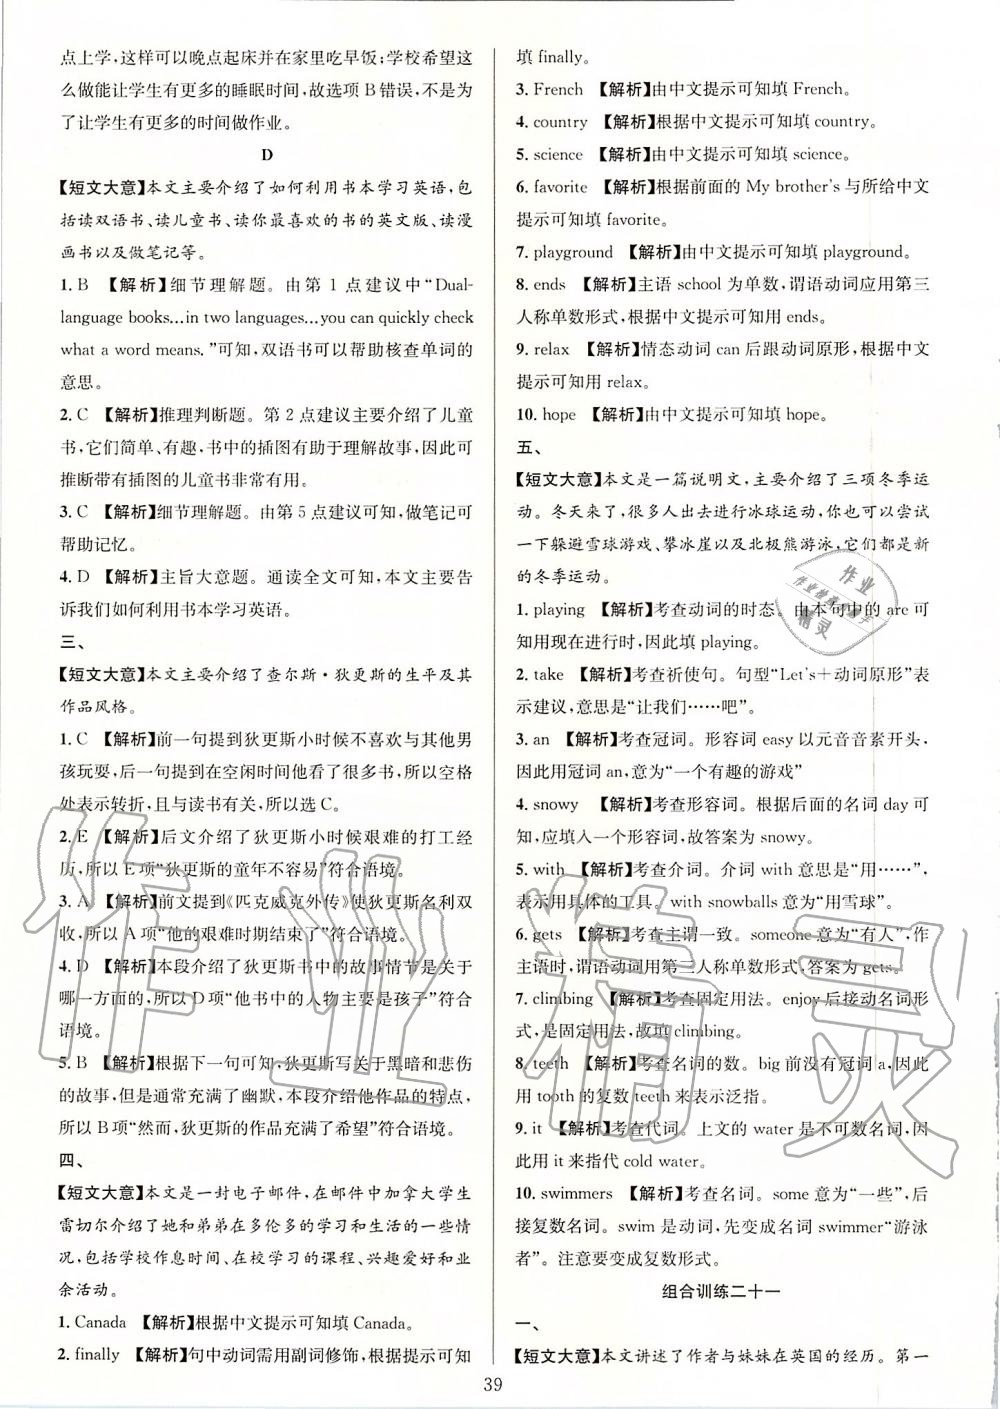 点上学,这样可以晚点起床并在家里吃早饭;学校希望这
么做能让学生有更多的睡眠时间,故选项B错误,不是为
了让学生有更多的时间做作业。
D
【短文大意】本文主要介绍了如何利用书本学习英语,包
括读双语书、读儿童书、读你最喜欢的书的英文版、读漫
画书以及做笔记等。
1. B 【解析】细节理解题。由第1点建议中“Dual-
language books...in two languages...you can quickly check
what a word means.”可知,双语书可以帮助核查单词的
意思。
2. C 【解析】推理判断题。第2点建议主要介绍了儿童
书,它们简单、有趣,书中的插图有助于理解故事,因此可
推断带有插图的儿童书非常有用。
3. C 【解析】细节理解题。由第5点建议可知,做笔记可
帮助记忆。
4. D 【解析】主旨大意题。通读全文可知,本文主要告
诉我们如何利用书本学习英语。
三、
【短文大意】本文主要介绍了查尔斯·狄更斯的生平及其
作品风格。
1. C 【解析】前一句提到狄更斯小时候不喜欢与其他男
孩玩耍,后一句提到在空闲时间他看了很多书,所以空格
处表示转折,且与读书有关,所以选C。
2. E 【解析】后文介绍了狄更斯小时候艰难的打工经
历,所以E项“狄更斯的童年不容易”符合语境。
3. A 【解析】前文提到《匹克威克外传》使狄更斯名利双
收,所以A项“他的艰难时期结束了”符合语境。
4. D 【解析】本段介绍狄更斯书中的故事情节是关于
哪一方面的,所以D项“他书中的人物主要是孩子”符合
语境。
5. B 【解析】根据下一句可知,狄更斯写关于黑暗和悲伤
的故事,但是通常充满了幽默,本段介绍他作品的特点,
所以B项“然而,狄更斯的作品充满了希望”符合语境。
四、
【短文大意】本文是一封电子邮件,在邮件中加拿大学生
雷切尔介绍了她和弟弟在多伦多的学习和生活的一些情
况,包括学校作息时间、在校学习的课程、兴趣爱好和业
余活动。
1. Canada 【解析】根据中文提示可知填Canada。
2. finally 【解析】句中动词需用副词修饰,根据提示可知
填finally。
3. French 【解析】由中文提示可知填French。
4. country 【解析】根据中文提示可知填country。
5. science 【解析】由中文提示可知填science。
6. favorite 【解析】根据前面的My brother's与所给中文
提示可知填favorite。
7. playground 【解析】由中文提示可知填playground。
8. ends 【解析】主语school为单数,谓语动词应用第三
人称单数形式,根据中文提示可知用ends。
9. relax 【解析】情态动词can后跟动词原形,根据中文
提示可知用relax。
10. hope 【解析】由中文提示可知填hope。
五、
【短文大意】本文是一篇说明文,主要介绍了三项冬季运
动。冬天来了,很多人出去进行冰球运动,你也可以尝试
一下躲避雪球游戏、攀冰崖以及北极熊游泳,它们都是新
的冬季运动。
1. playing 【解析】考查动词的时态。由本句中的are可
知用现在进行时,因此填playing。
2. take 【解析】考查祈使句。句型“Let's+动词原形”表
示建议,意思是“让我们……吧”。
3. an 【解析】考查冠词。形容词easy以元音音素开头,
因此用冠词an,意为“一个有趣的游戏”
4. snowy 【解析】考查形容词。根据后面的名词day可
知,应填入一个形容词,故答案为snowy。
5. with 【解析】考查介词。介词with意思是“用……”,
表示用具体的工具。with snowballs意为“用雪球”。
6. gets 【解析】考查主谓一致。someone意为“有人”,作
主语时,谓语动词用第三人称单数形式,答案为gets。
7. climbing 【解析】考查固定用法。enjoy后接动名词形
式,是固定用法,故填climbing。
8. teeth 【解析】考查名词的数。big前没有冠词a,因此
用tooth的复数teeth来表示泛指。
9. it 【解析】考查代词。上文的water是不可数名词,因
此用it来指代cold water。
10. swimmers 【解析】考查名词。some意为“一些”,后
接复数名词。swim是动词,先变成名词swimmer“游泳
者”。注意要变成复数形式。
组合训练二十一
一、
【短文大意】本文讲述了作者与妹妹在英国的经历。第一
39
作业精灵